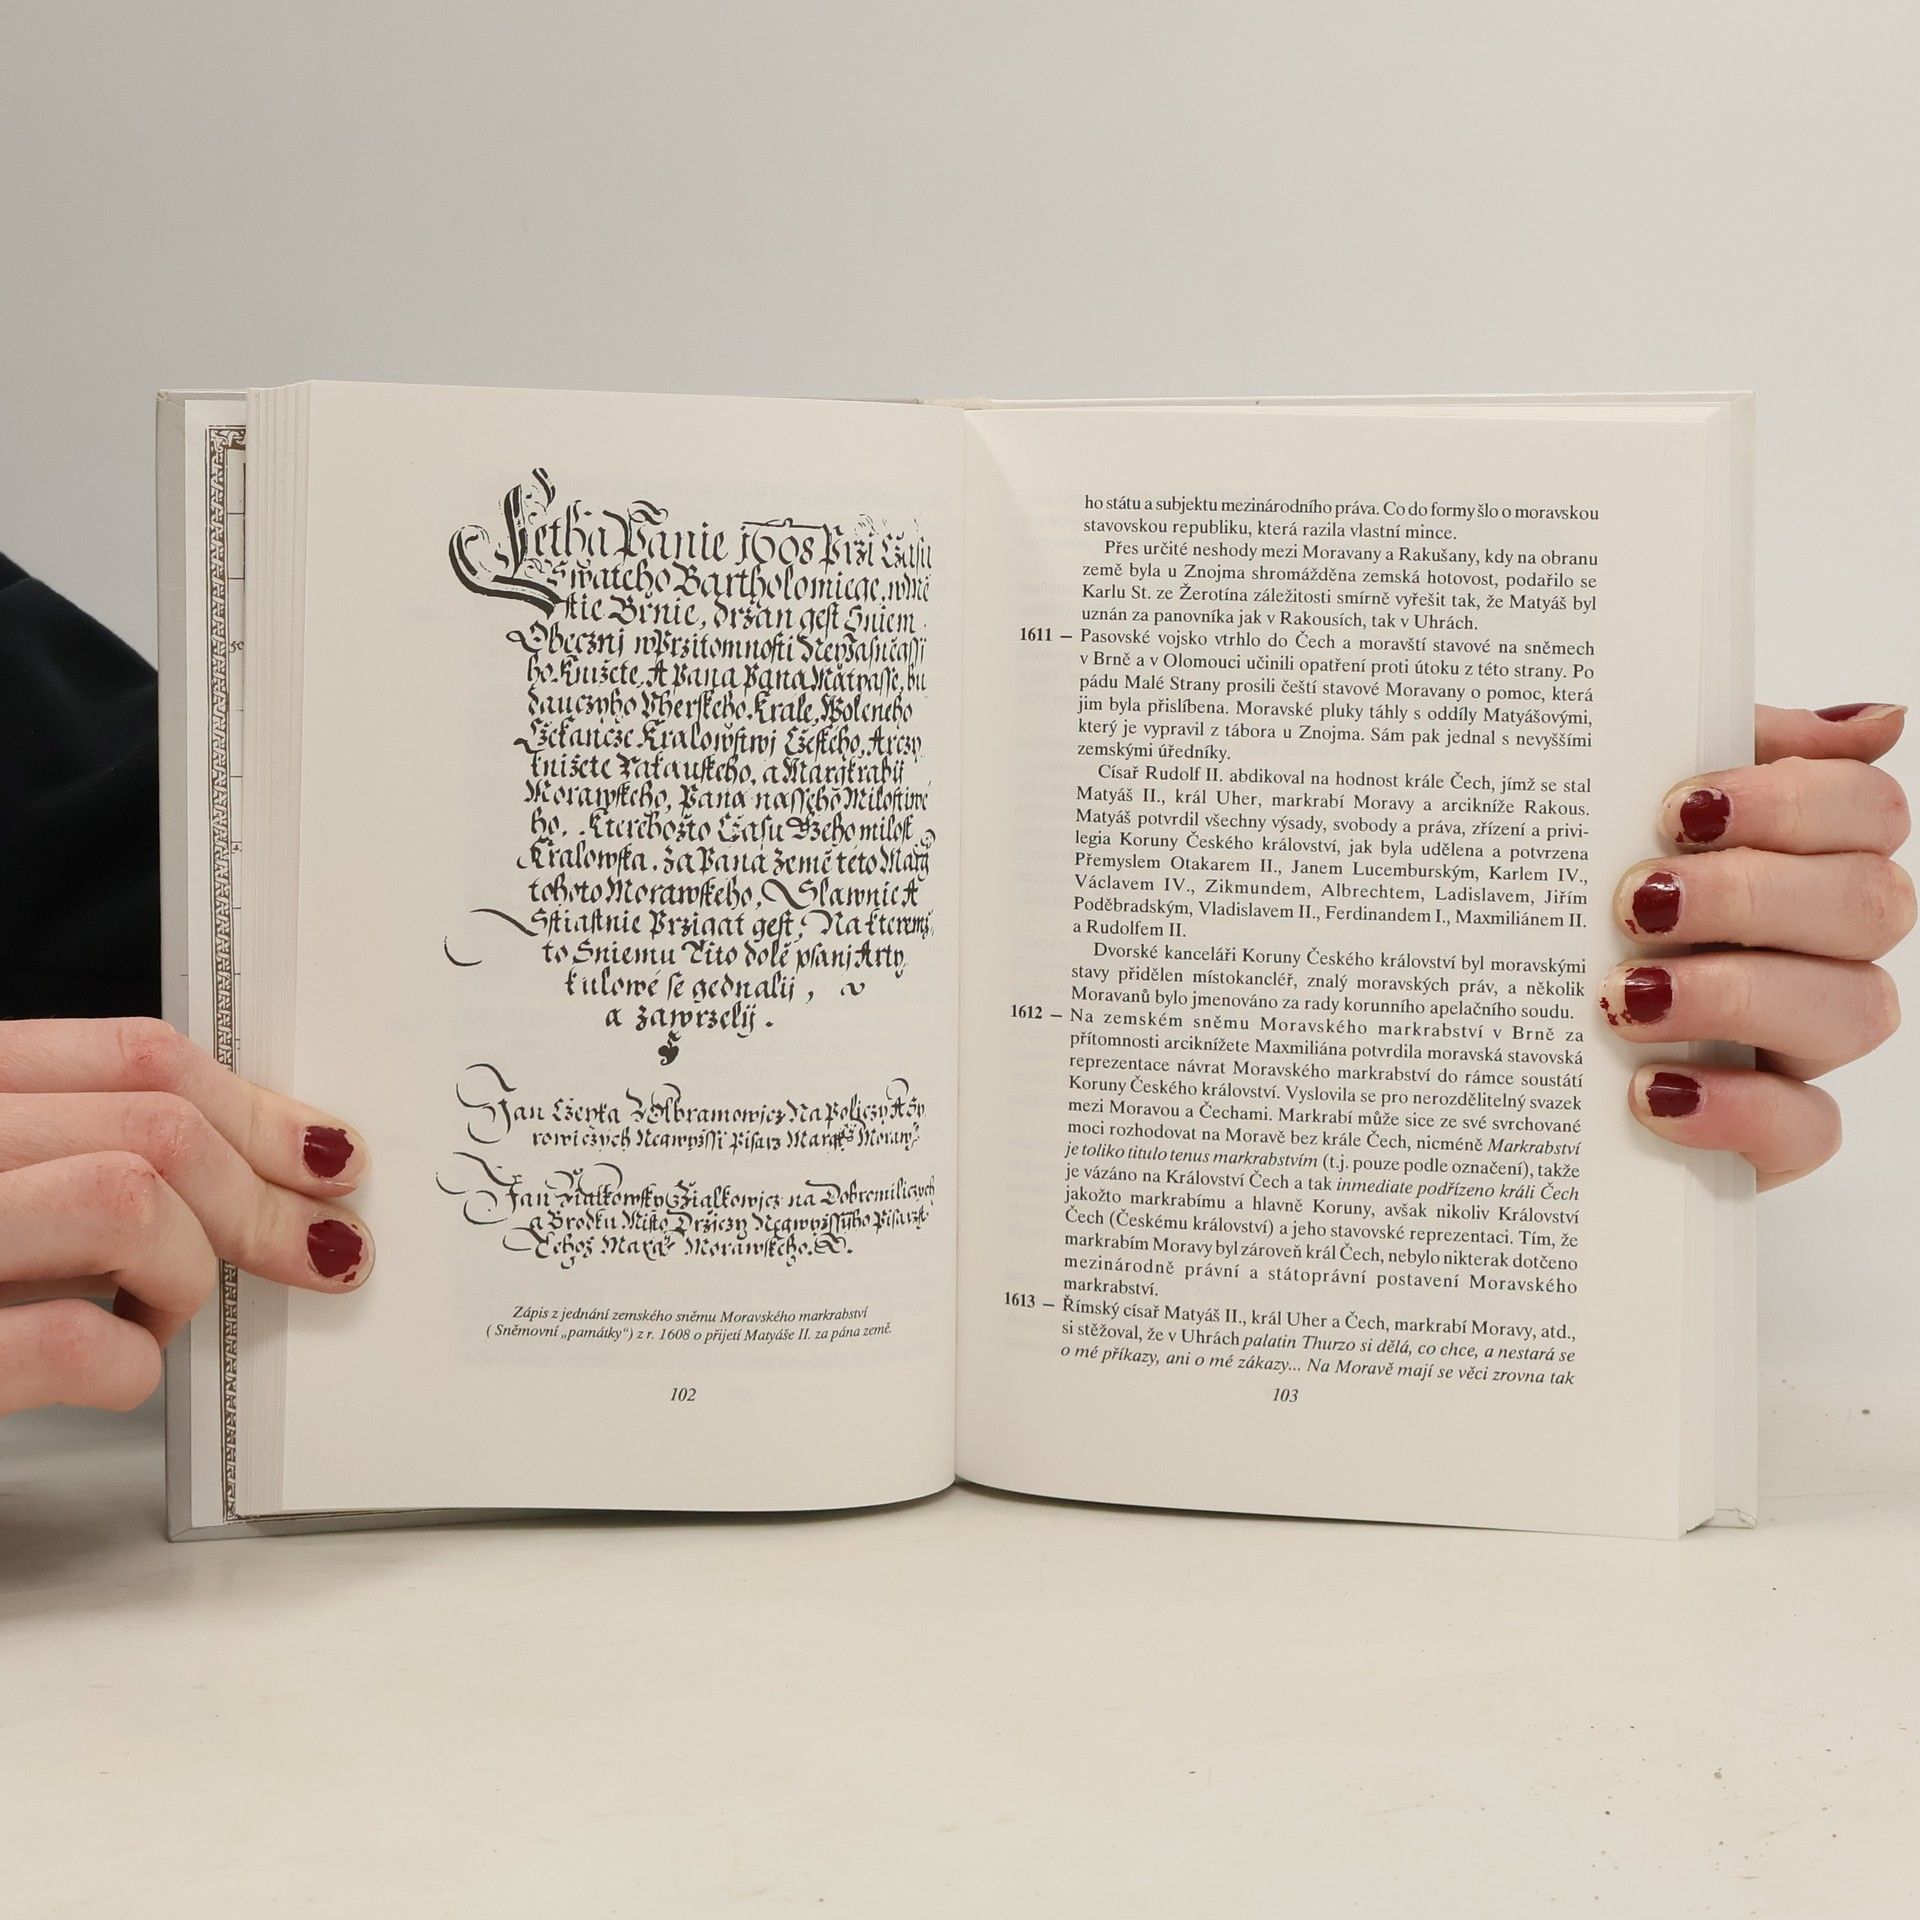 Letha Panie 1608 Przi Cžasu
Swateho Bartholomiege, w Mě
stie Brnie, držan gest Sniem
Obecznj w Przitomnosti
ho Knižete, A Pana Pana Matyasse, bu
dauczyho Vherskeho Krale, Woleneho
Cžekancže Kralowstwj Cžeskeho, Arczy
knižete Rakauskeho, a Margkrabij
Morawskeho, Pana nasseho Milostiwe
ho, Kterehožto Cžasu Geho milost
Kralowska, za Pana Země teto Marg
tohoto Morawskeho, Slawnie A
Sstiastnie Przigat gest, Na kteremž
to Sniemu Tito dolě psanj Arty
kulowé se gednalij,
a zawrzelij.
Jan Cžeyka Na Policzy A Sy
rowiczych Neywyšší Pisarz Morawˢ
Jan na Dobromiliczych
a Brodku Misto Držiczy Pisarzst
Tehož Morawskeho.
Zápis z jednání zemského sněmu Moravského markrabství
( Sněmovní „památky“) z r. 1608 o přijetí Matyáše II. za pána země.
102
50
ho státu a subjektu mezinárodního práva. Co do formy šlo o moravskou
stavovskou republiku, která razila vlastní mince.
Přes určité neshody mezi Moravany a Rakušany, kdy na obranu
země byla u Znojma shromážděna zemská hotovost, podařilo se
Karlu St. ze Žerotína záležitosti smírně vyřešit tak, že Matyáš byl
uznán za panovníka jak v Rakousích, tak v Uhrách.
1611 – Pasovské vojsko vtrhlo do Čech a moravští stavové na sněmech
v Brně a v Olomouci učinili opatření proti útoku z této strany. Po
pádu Malé Strany prosili čeští stavové Moravany o pomoc, která
jim byla přislíbena. Moravské pluky táhly s oddíly Matyášovými,
který je vypravil z tábora u Znojma. Sám pak jednal s nevyššími
zemskými úředníky.
Císař Rudolf II. abdikoval na hodnost krále Čech, jímž se stal
Matyáš II., král Uher, markrabí Moravy a arcikníže Rakous.
Matyáš potvrdil všechny výsady, svobody a práva, zřízení a privi-
legia Koruny Českého království, jak byla udělena a potvrzena
Přemyslem Otakarem II., Janem Lucemburským, Karlem IV.,
Václavem IV., Zikmundem, Albrechtem, Ladislavem, Jiřím
Poděbradským, Vladislavem II., Ferdinandem I., Maxmiliánem II.
a Rudolfem II.
Dvorské kanceláři Koruny Českého království byl moravskými
stavy přidělen místokancléř, znalý moravských práv, a několik
Moravanů bylo jmenováno za rady korunního apelačního soudu.
1612 – Na zemském sněmu Moravského markrabství v Brně za
přítomnosti arciknížete Maxmiliána potvrdila moravská stavovská
reprezentace návrat Moravského markrabství do rámce soustátí
Koruny Českého království. Vyslovila se pro nerozdělitelný svazek
mezi Moravou a Čechami. Markrabí může sice ze své svrchované
moci rozhodovat na Moravě bez krále Čech, nicméně Markrabství
je toliko titulo tenus markrabstvím (t.j. pouze podle označení), takže
je vázáno na Království Čech a tak inmediate podřízeno králi Čech
jakožto markrabímu a hlavně Koruny, avšak nikoliv Království
Čech (Českému království) a jeho stavovské reprezentaci. Tím, že
markrabím Moravy byl zároveň král Čech, nebylo nikterak dotčeno
mezinárodně právní a státoprávní postavení Moravského
markrabství.
1613 – Římský císař Matyáš II., král Uher a Čech, markrabí Moravy, atd.,
si stěžoval, že v Uhrách palatin Thurzo si dělá, co chce, a nestará se
o mé příkazy, ani o mé zákazy... Na Moravě mají se věci zrovna tak
103